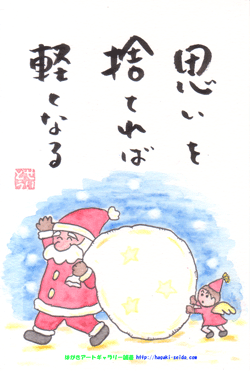 思いを
捨てれば
軽くなる
はがきアートギャラリー誠道 http://hagaki-seido.com/